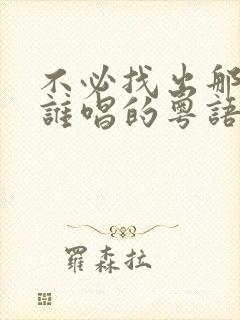 不必找出那
誰唱的粵語
羅森拉